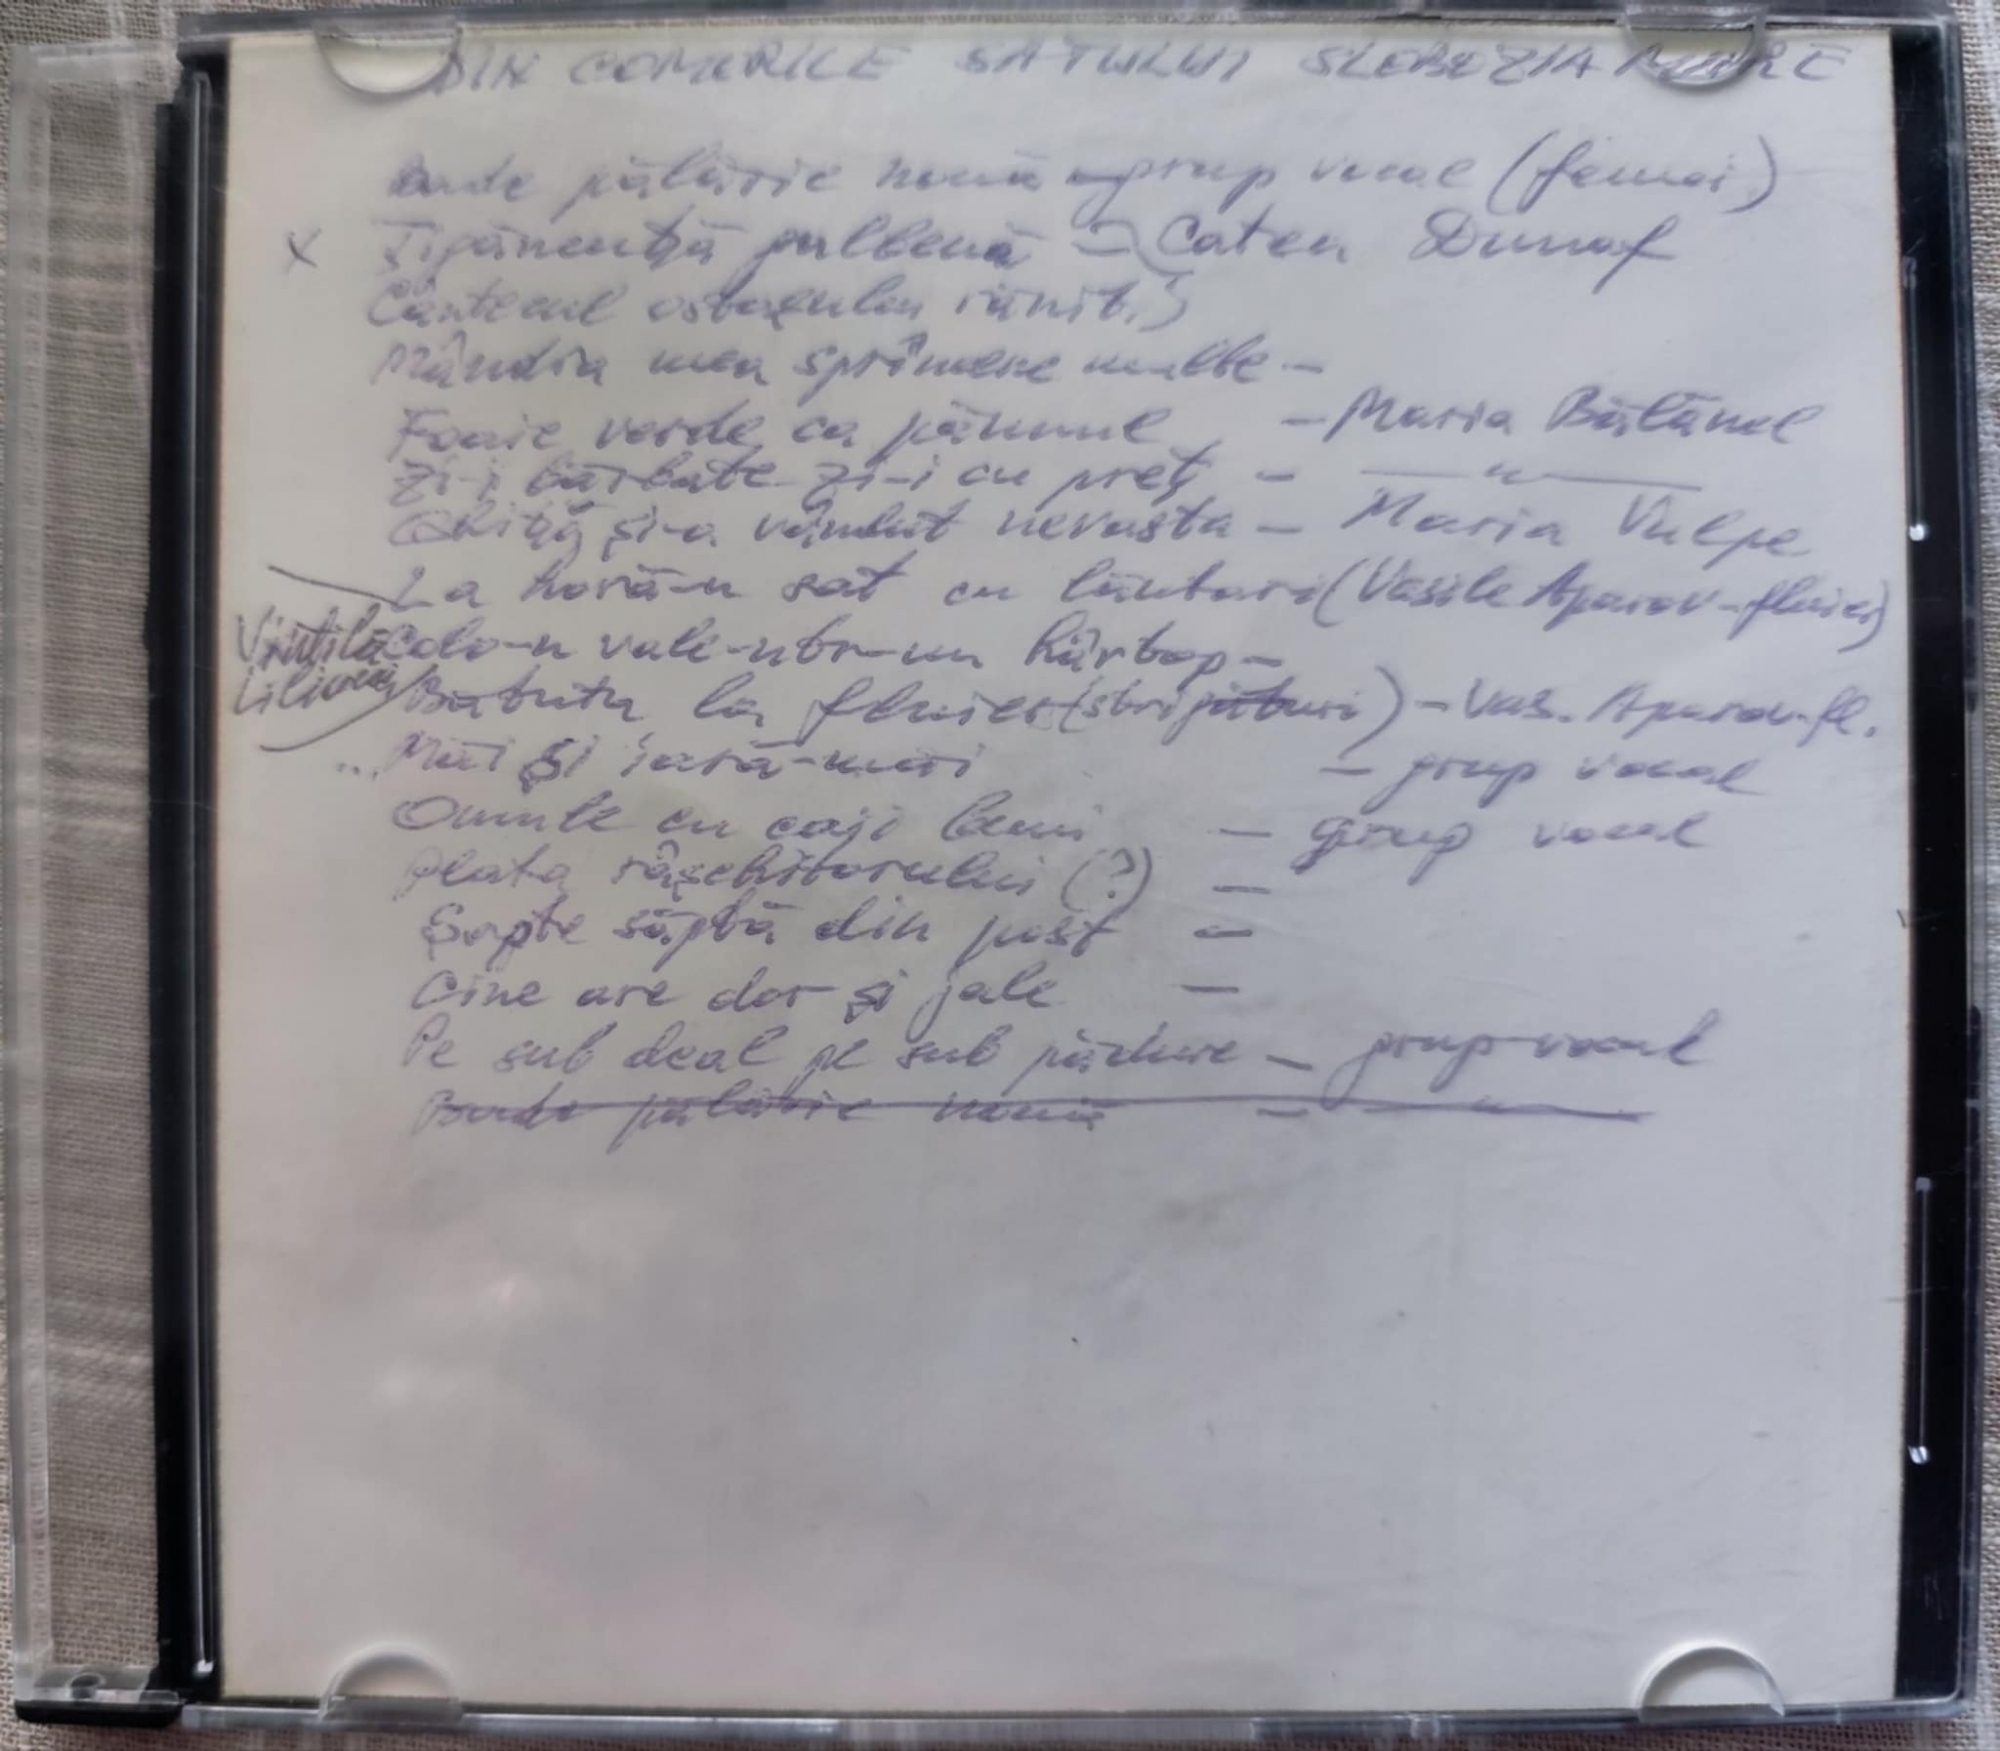 DIN COMORILE SATULUI SLOBOZIA MARE
Bade pălărie nouă - grup vocal (femei)
x Țigăncușă galbenă - Caten Dunaf
Cântecul ostașului rănit
Mândra mea sprâncene -
Foaie verde ca părunul - Maria Bălănel
Zi-i bărbate zi-i cu preț - —"—
Ghiță și-a vândut nevasta - Maria Vulpe
La horă-n sat cu lăutari (Vasile Aparov - fluier)
Colo-n vale-ntr-un hârtop -
Bătuta la fluier (strigături) - Vas. Aparov - fl.
Măi și iară-măi - grup vocal
Oamule cu caji buni - grup vocal
Plata rășchitorului (?) -
Șapte săptă din post -
Cine are dor și jale -
Pe sub deal pe sub pădure - grup vocal
Bade pălărie nouă - —"—